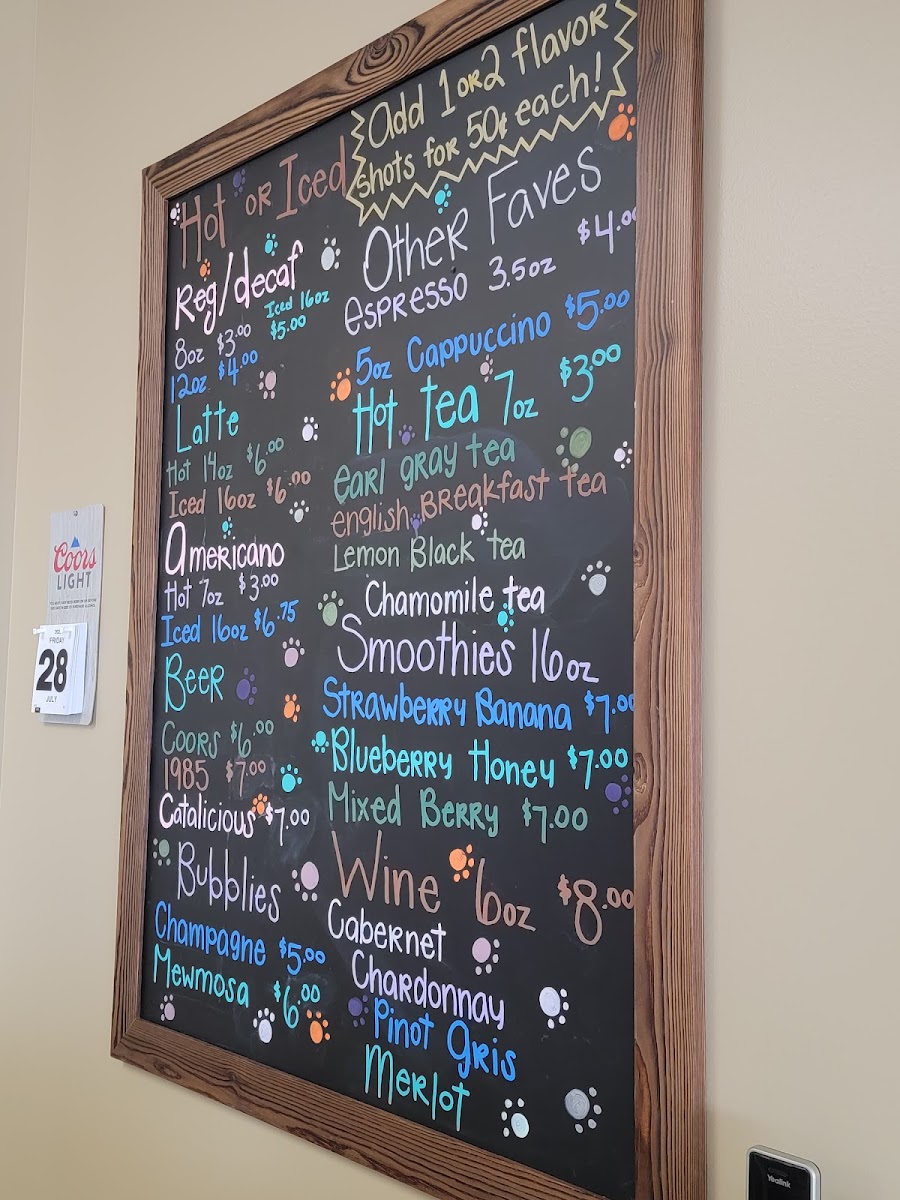 Add 1 or 2 flavor
shots for 50¢ each!
Hot or Iced
Reg/decaf
Iced 16oz
$5.00
8oz $3.00
12oz $4.00
Latte
Hot 14oz $6.00
Iced 16oz $6.00
Americano
Hot 7oz $3.00
Iced 16oz $6.75
Beer
Coors $6.00
1985 $7.00
Catalicious $7.00
Bubblies
Champagne $5.00
Mewmosa $6.00
Other Faves
espresso 3.5oz $4.00
5oz Cappuccino $5.00
Hot tea 7oz $3.00
earl gray tea
english Breakfast tea
Lemon Black tea
Chamomile tea
Smoothies 16oz
Strawberry Banana $7.00
Blueberry Honey $7.00
Mixed Berry $7.00
Wine 6oz $8.00
Cabernet
Chardonnay
Pinot Gris
Merlot
Coors
LIGHT
FRIDAY
28
JULY
Yealink